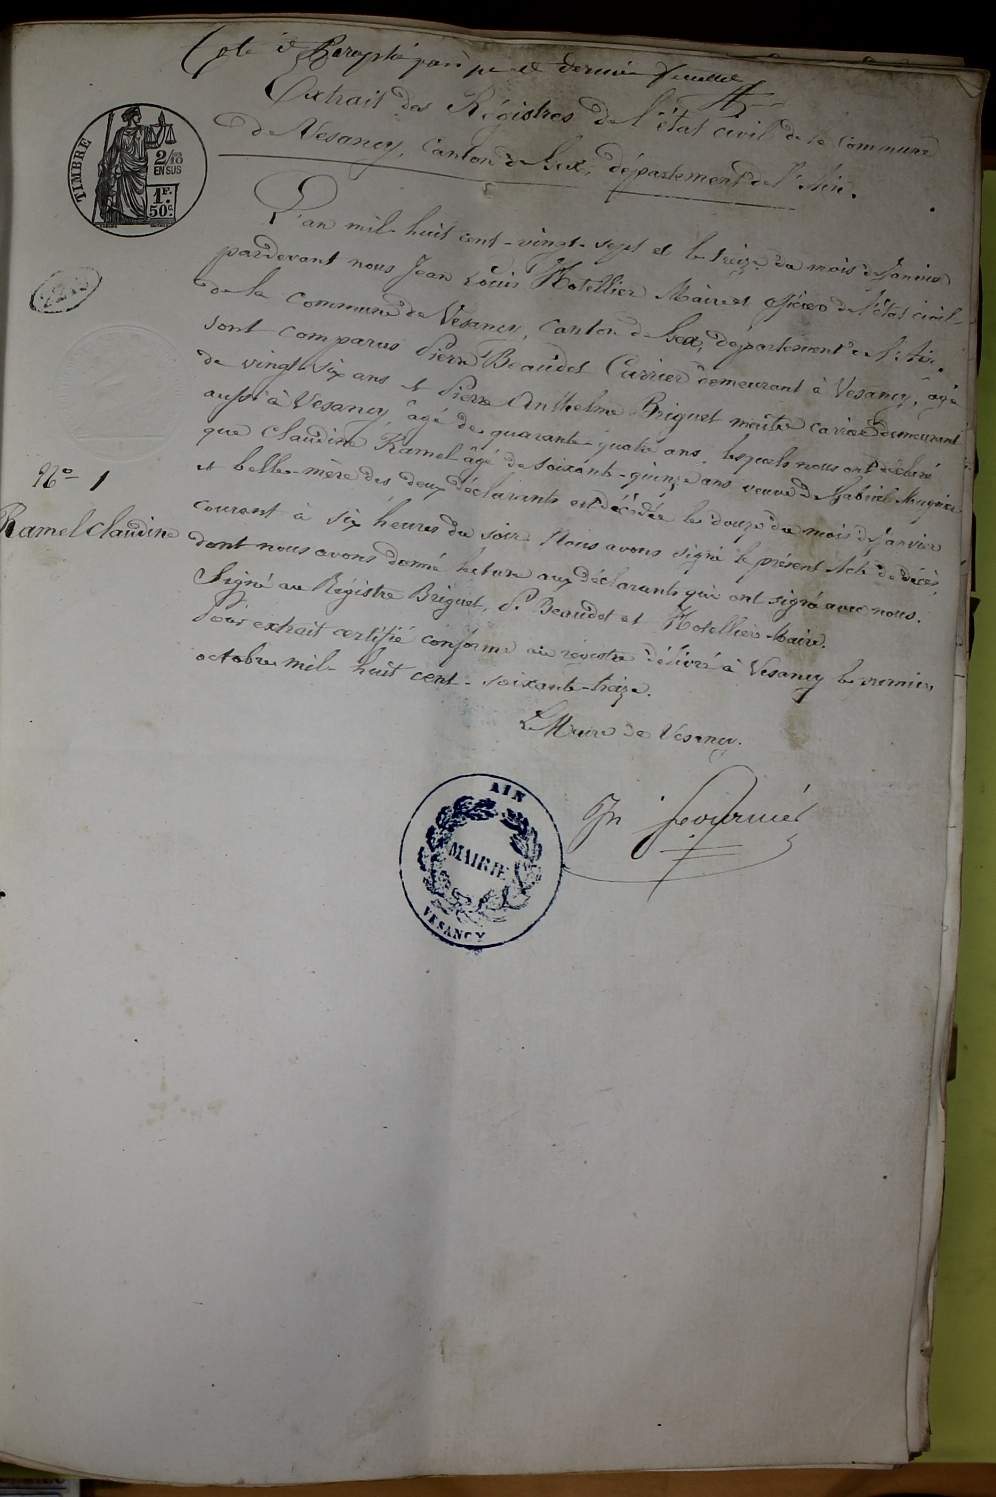 Coté et Paraphé par pr et dernier feuillet
Extrait des Régistres de l'état civil de la Commune
de Vesancy, Canton de Gex, département de l'Ain.
TIMBRE
2/10
EN SUS
1F.
50c.
L'an mil huit cent-vingt-sept et le treize du mois de Janvier
pardevant nous Jean Louis Hotellier Maire et officier de l'état civil
de la Commune de Vesancy, Canton de Gex, département de l'Ain.
sont comparus Pierre Beaudet Currier demeurant à Vesancy, âgé
de vingt-six ans et Pierre Anthelme Briguet maître demeurant
aussi à Vesancy, âgé de quarante-quatre ans, lesquels nous ont déclaré
que Claudine Ramel âgé de soixante-quinze ans veuve de Gabriel
et belle-mère des deux déclarants est décédée le douze du mois de Janvier
courant à six heures du soir. Nous avons signé le présent Acte de décès,
dont nous avons donné lecture aux déclarants qui ont signé avec nous.
Signé au Régistre Briguet, P. Beaudet et Hotellier Maire.
Pour extrait certifié conforme au régistre délivré à Vesancy le premier
octobre mil huit cent-soixante-treize.
No 1
Ramel Claudine
Le Maire de Vesancy.
Jn Fournier
AIN
MAIRIE
VESANCY